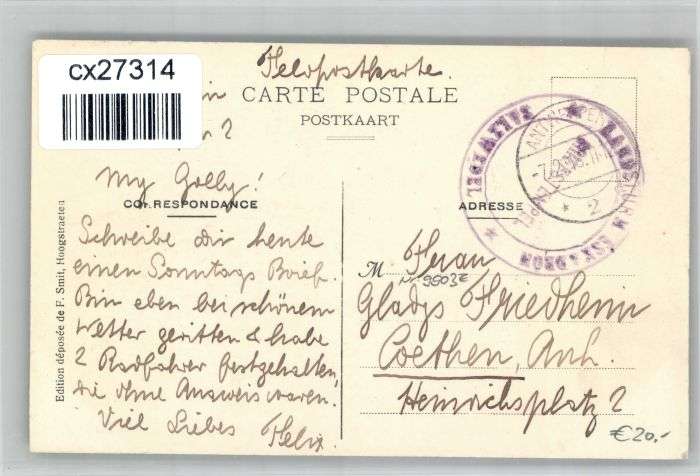 cx27314
Feldpostkarte.
CARTE POSTALE
POSTKAART
2
My Golly!
CORRESPONDANCE
ADRESSE
Schreibe dir heute
einen Sonntags Brief.
Bin eben bei schönem
Wetter geritten & habe
2 Radfahrer festgehalten,
die ohne Ausweis waren.
Viel Liebes Felix.
Edition déposée de F. Smit, Hoogstraeten
LANDSTURM ESKADRON
ANTWERPEN
2
M Frau
Gladys Friedheim
Coethen, Anh.
Heinrichsplatz 2
€20.-